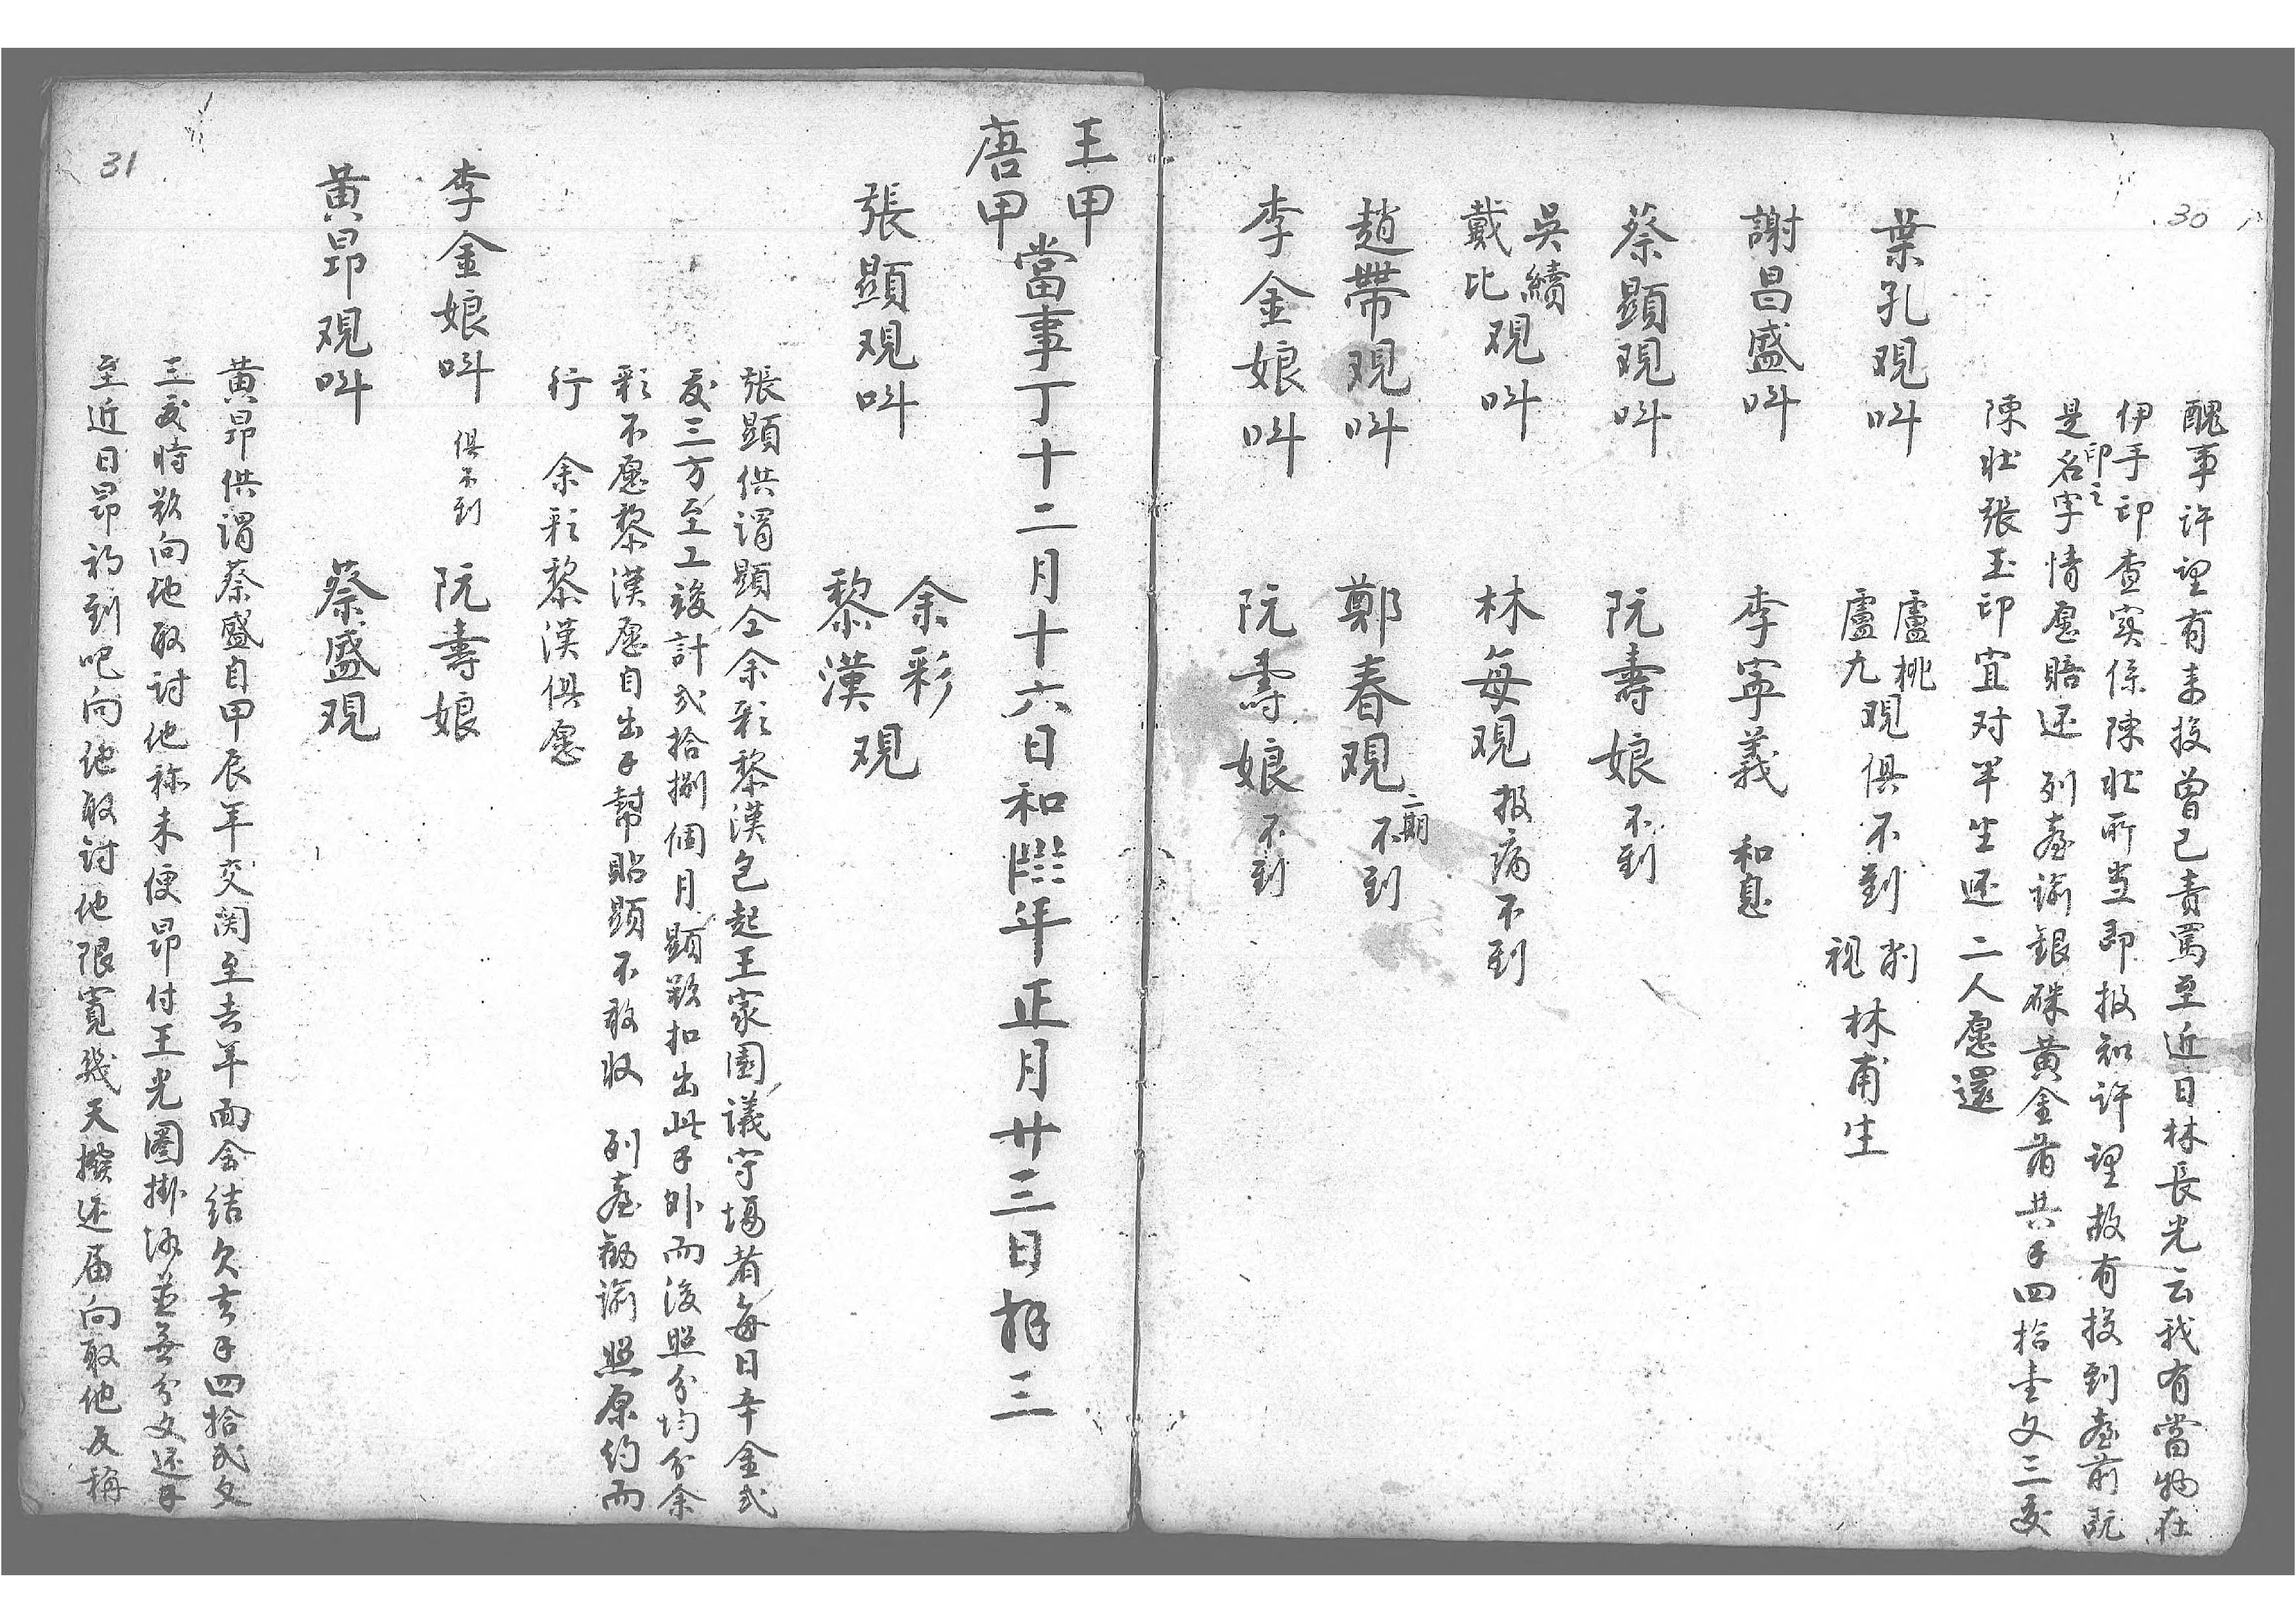 30
醜事許望有來投曾已責罵至近日林長光云我有當物在
伊手印查寔係陳壯所当即报知許望故有投到臺前既
是印之名字情愿賠还 列臺諭銀硃黃金着共子四拾壹文三叐
陳壯張玉印宜对半坐还 二人愿還
葉孔观呌 盧桃 盧九观俱不到 削 視 林甫生
謝昌盛呌 李寧義 和息
蔡顯观呌 阮壽娘 不到
吳續 戴比观呌 林每观 报病不到
趙帶观呌 鄭春观 二期不到
李金娘呌 阮壽娘 不到
王甲
唐甲 當事丁十二月十六日和 年正月廿三日拜三
張顯观呌 余彩 黎漢 观
張顯供謂顯仝余彩黎漢包起王家園議守塲者每日辛金弍
叐三方至工竣計弍拾捌個月顯欵扣出此子外而後照分均分余
彩不愿黎漢愿自出子幫貼顯不敢收 列臺勸諭照原約而
行 余彩黎漢俱愿
李金娘呌 俱不到 阮壽娘
黃昂观呌 蔡盛观
黃昂供謂蔡盛自甲辰年交関至去年面会結欠去子四拾弍文
三叐時欵向他取討他称未便昂付王光圈掛泒並無分文还子
至近日昂衫到吧向他取討他限寬幾天撥还届向取他反稱
31